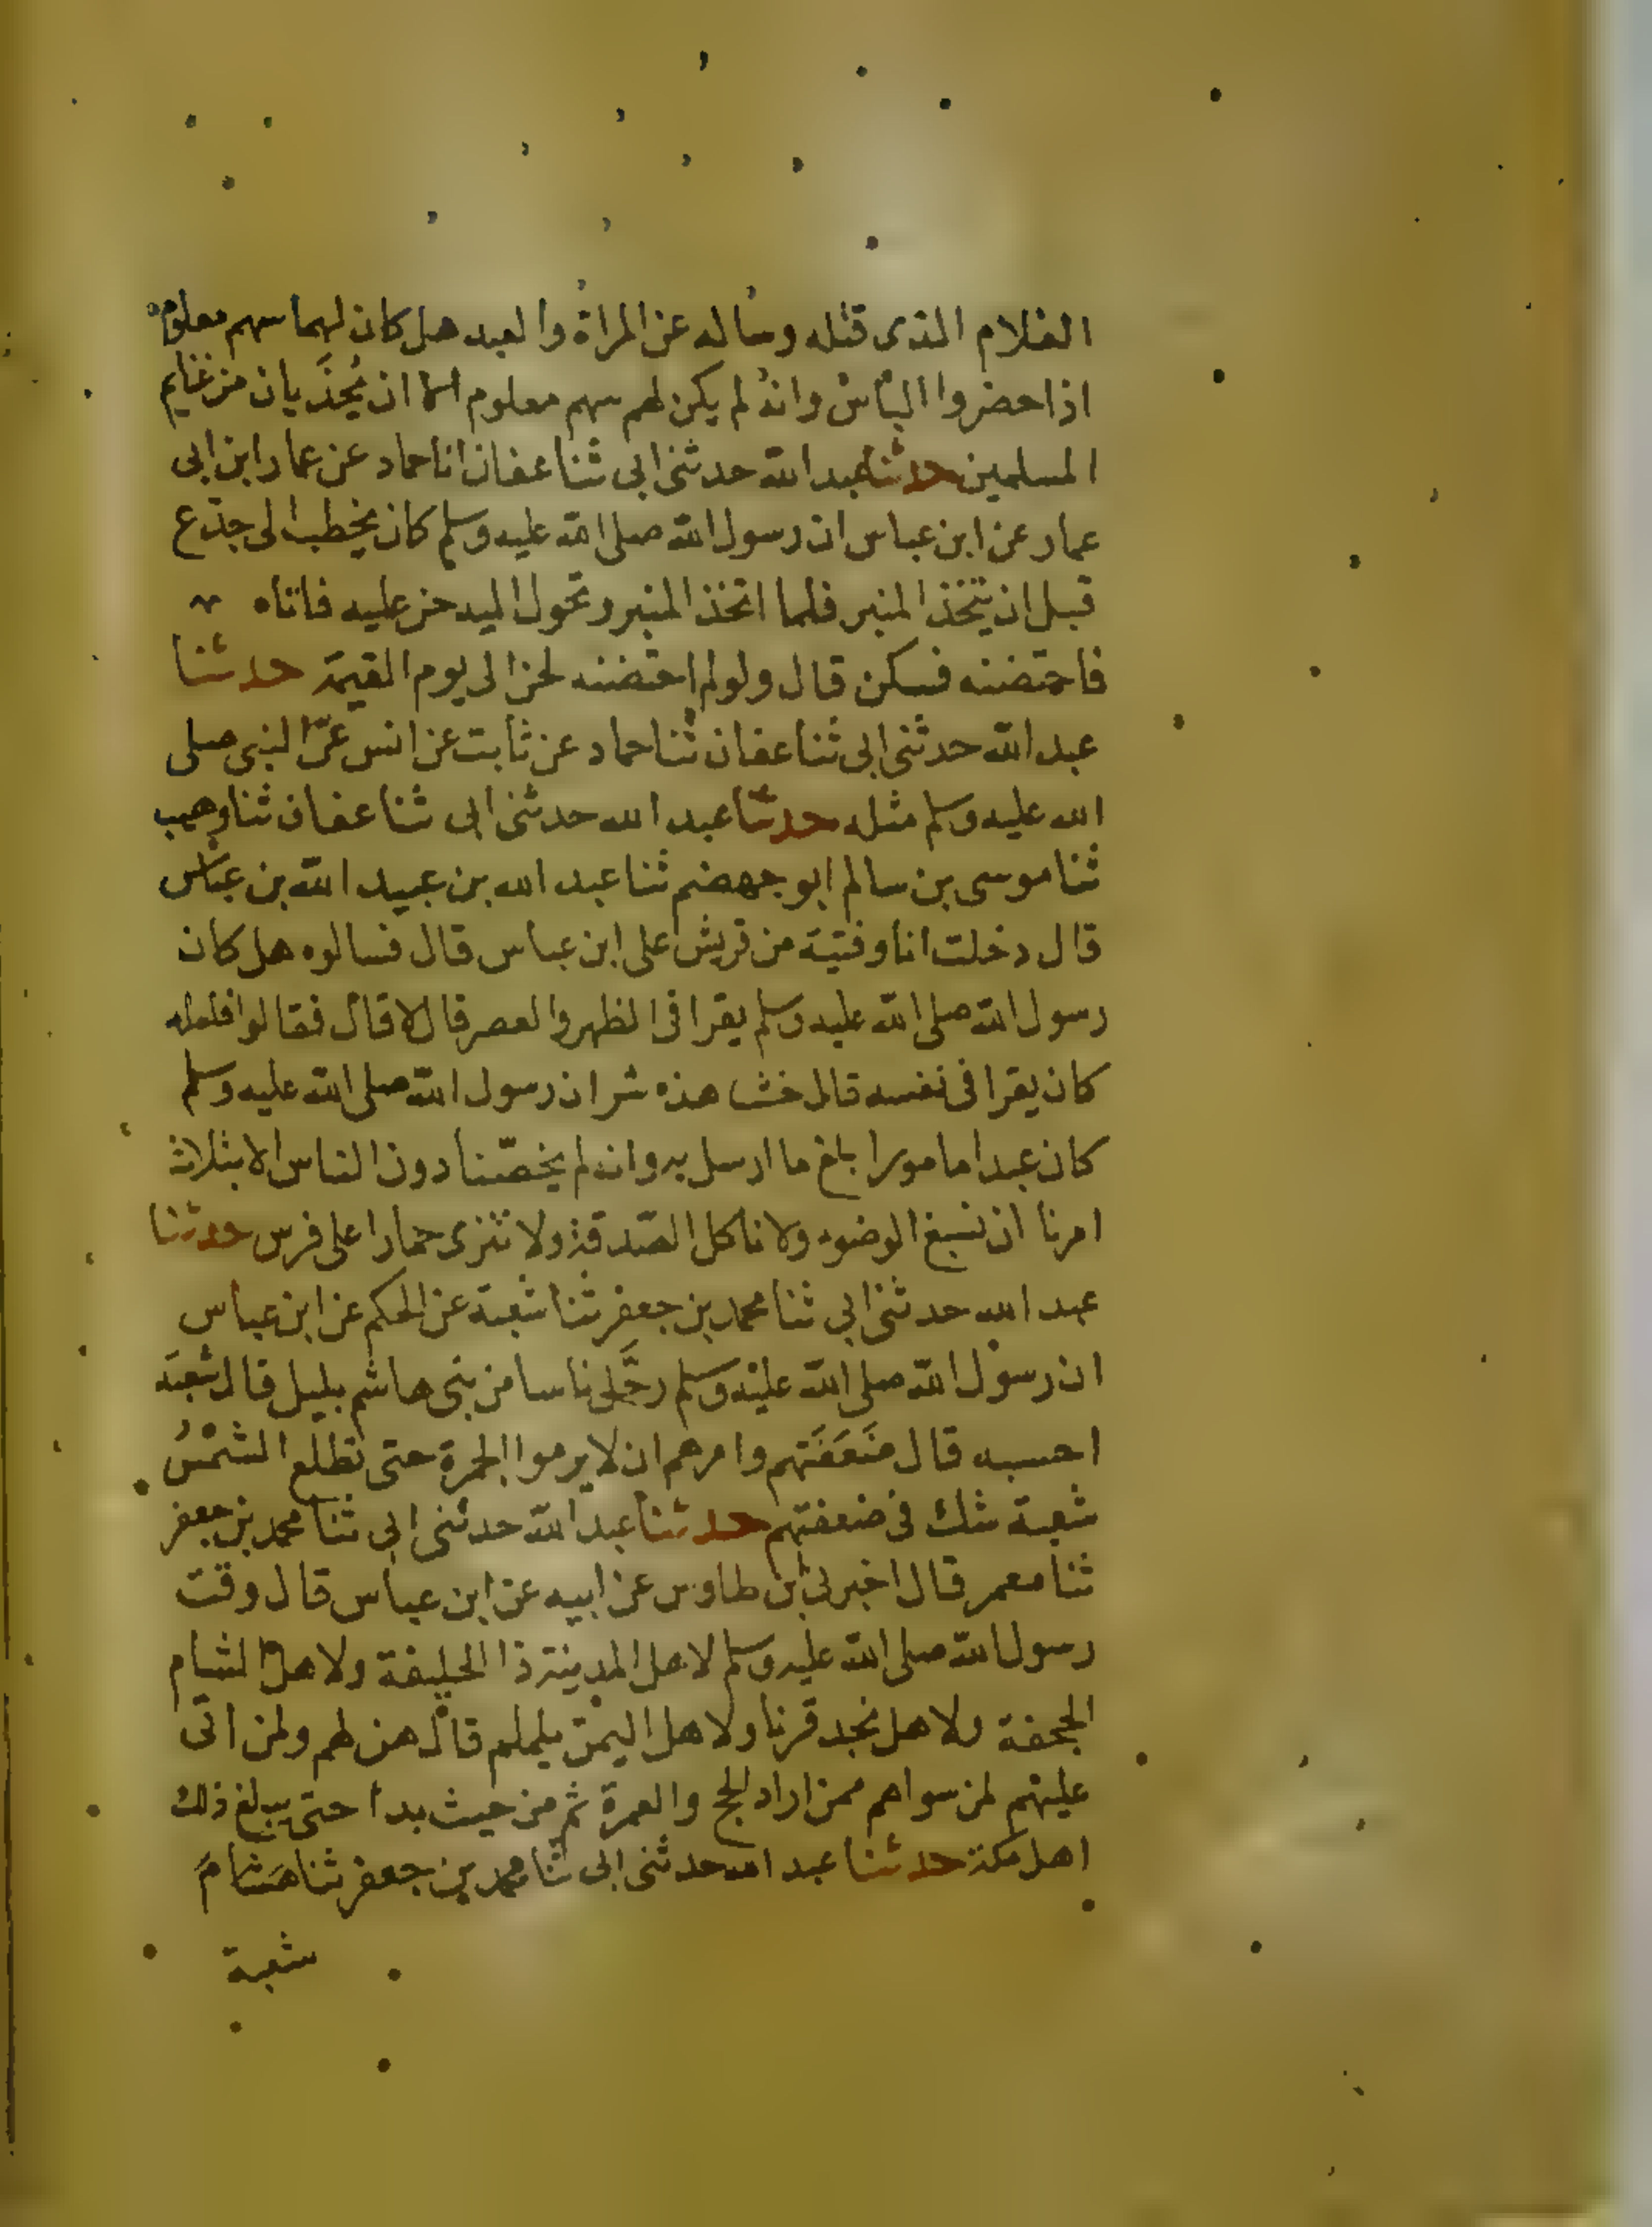 الغلام الذى قتله وساله عن المراة والعبد هل كان لهما سهم معلوم
اذا حضروا الباس وانه لم يكن لهم سهم معلوم الا ان يُحذَيان من غنايم
المسلمين حدثنا عبد الله حدثنى ابى ثنا عفان انا حماد عن عمار ابن ابى
عمار عن ابن عباس ان رسول الله صلى الله عليه وسلم كان يخطب الى جذع
قبل ان يتخذ المنبر فلما اتخذ المنبر وتحول اليه حن عليه فاتاه
فاحتضنه فسكن قال ولو لم احتضنه لحن الى يوم القيمة حدثنا
عبد الله حدثنى ابى ثنا عفان ثنا حماد عن ثابت عن انس عن النبى صلى
الله عليه وسلم مثله حدثنا عبد الله حدثنى ابى ثنا عفان ثنا وهيب
ثنا موسى بن سالم ابو جهضم ثنا عبد الله بن عبيد الله بن عباس
قال دخلت انا وفتية من قريش على ابن عباس قال فسالوه هل كان
رسول الله صلى الله عليه وسلم يقرا فى الظهر والعصر قال لا قال فقالوا فلعله
كان يقرا فى نفسه قال خمشا هذه شر ان رسول الله صلى الله عليه وسلم
كان عبدا مامورا بلغ ما ارسل به وانه لم يخصّنا دون الناس الا بثلاث
امرنا ان نسبغ الوضوء ولا ناكل الصّدقة ولا ننزى حمارا على فرس حدثنا
عبد الله حدثنى ابى ثنا محمد بن جعفر ثنا شعبة عن الحكم عن ابن عباس
ان رسول الله صلى الله عليه وسلم رحَّل ناسا من بنى هاشم بليل قال شعبَة
احسبه قال ضَعَفَتهم وامرهم ان لا يرموا الجمرة حتى تطلع الشمْسُ
شعبة شك فى ضعفتهم حدثنا عبد الله حدثنى ابى ثنا محمد بن جعفر
ثنا معمر قال اخبرنى ابن طاوس عن ابيه عن ابن عباس قال وقت
رسول الله صلى الله عليه وسلم لاهل المدينة ذا الحليفة ولاهل الشام
الجحفة ولاهل نجد قرنا ولاهل اليمن يلملم قال هن لهم ولمن اتى
عليهم لمن سواهم ممن اراد الحج والعمرة ثم من حيث بدا حتى يبلغ ذلك
اهل مكة حدثنا عبد الله حدثنى ابى ثنا محمد بن جعفر ثنا هشام
شعبة